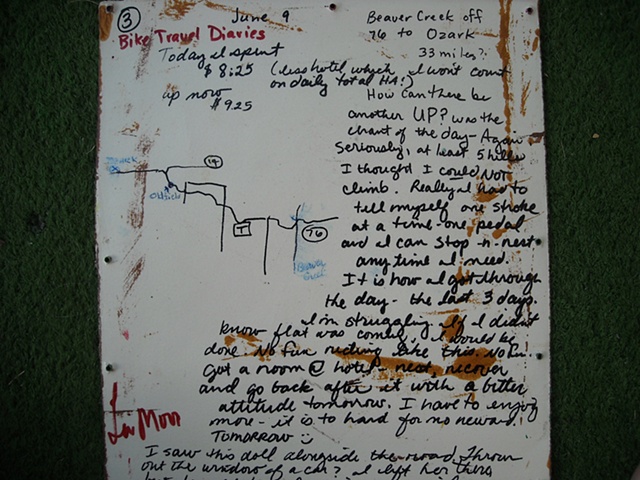 3
June 9
Bike Travel Diaries
Today I spent
$8.25 (less hotel which I won't count
on daily total HA!)
up now
$9.25
Beaver Creek off
76 to Ozark
33 miles?
How can there be
another UP? was the
chant of the day - Again
seriously, at least 5 hills
I thought I could NOT
climb. Really I had to
tell myself one stroke
at a time - one pedal
and I can stop -n- rest
any time I need.
It is how I got through
the day - the last 3 days.
I'm struggling. If I didn't
know flat was coming, I would be
done. No fun riding like this. No fun!
Got a room @ hotel - rest, recover
and go back after it with a better
attitude tomorrow. I have to enjoy
more - it is to hard for no reward.
TOMORROW
I saw this doll alongside the road. Thrown
out the window of a car? I left her there
14
T
76
Ozark
Beaver
Creek